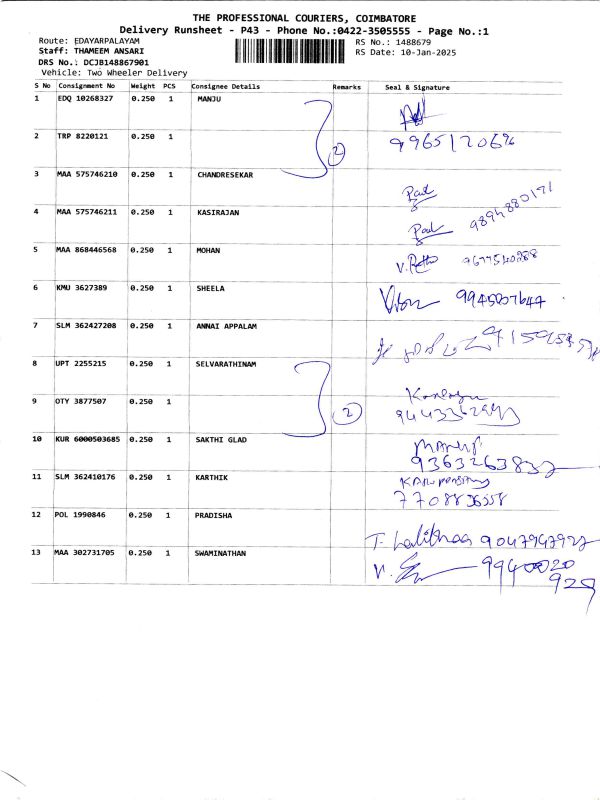 THE PROFESSIONAL COURIERS, COIMBATORE
Delivery Runsheet - P43 - Phone No.:0422-3505555 - Page No.:1
Route: EDAYARPALAYAM
RS No.: 1488679
Staff: THAMEEM ANSARI
RS Date: 10-Jan-2025
DRS No.: DCJB148867901
Vehicle: Two Wheeler Delivery
S No Consignment No Weight PCS Consignee Details Remarks Seal & Signature
1 EDQ 10268327 0.250 1 MANJU
2 TRP 8220121 0.250 1 2 9965120696
3 MAA 575746210 0.250 1 CHANDRESEKAR Paul
4 MAA 575746211 0.250 1 KASIRAJAN Paul 9894880171
5 MAA 868446568 0.250 1 MOHAN 9677540288
6 KMU 3627389 0.250 1 SHEELA 9945207647
7 SLM 362427208 0.250 1 ANNAI APPALAM
8 UPT 2255215 0.250 1 SELVARATHINAM
9 OTY 3877507 0.250 1 2
10 KUR 6000503685 0.250 1 SAKTHI GLAD 9363263832
11 SLM 362410176 0.250 1 KARTHIK 7708836558
12 POL 1990846 0.250 1 PRADISHA T. Lalithaa 9047947927
13 MAA 302731705 0.250 1 SWAMINATHAN 9940020
929